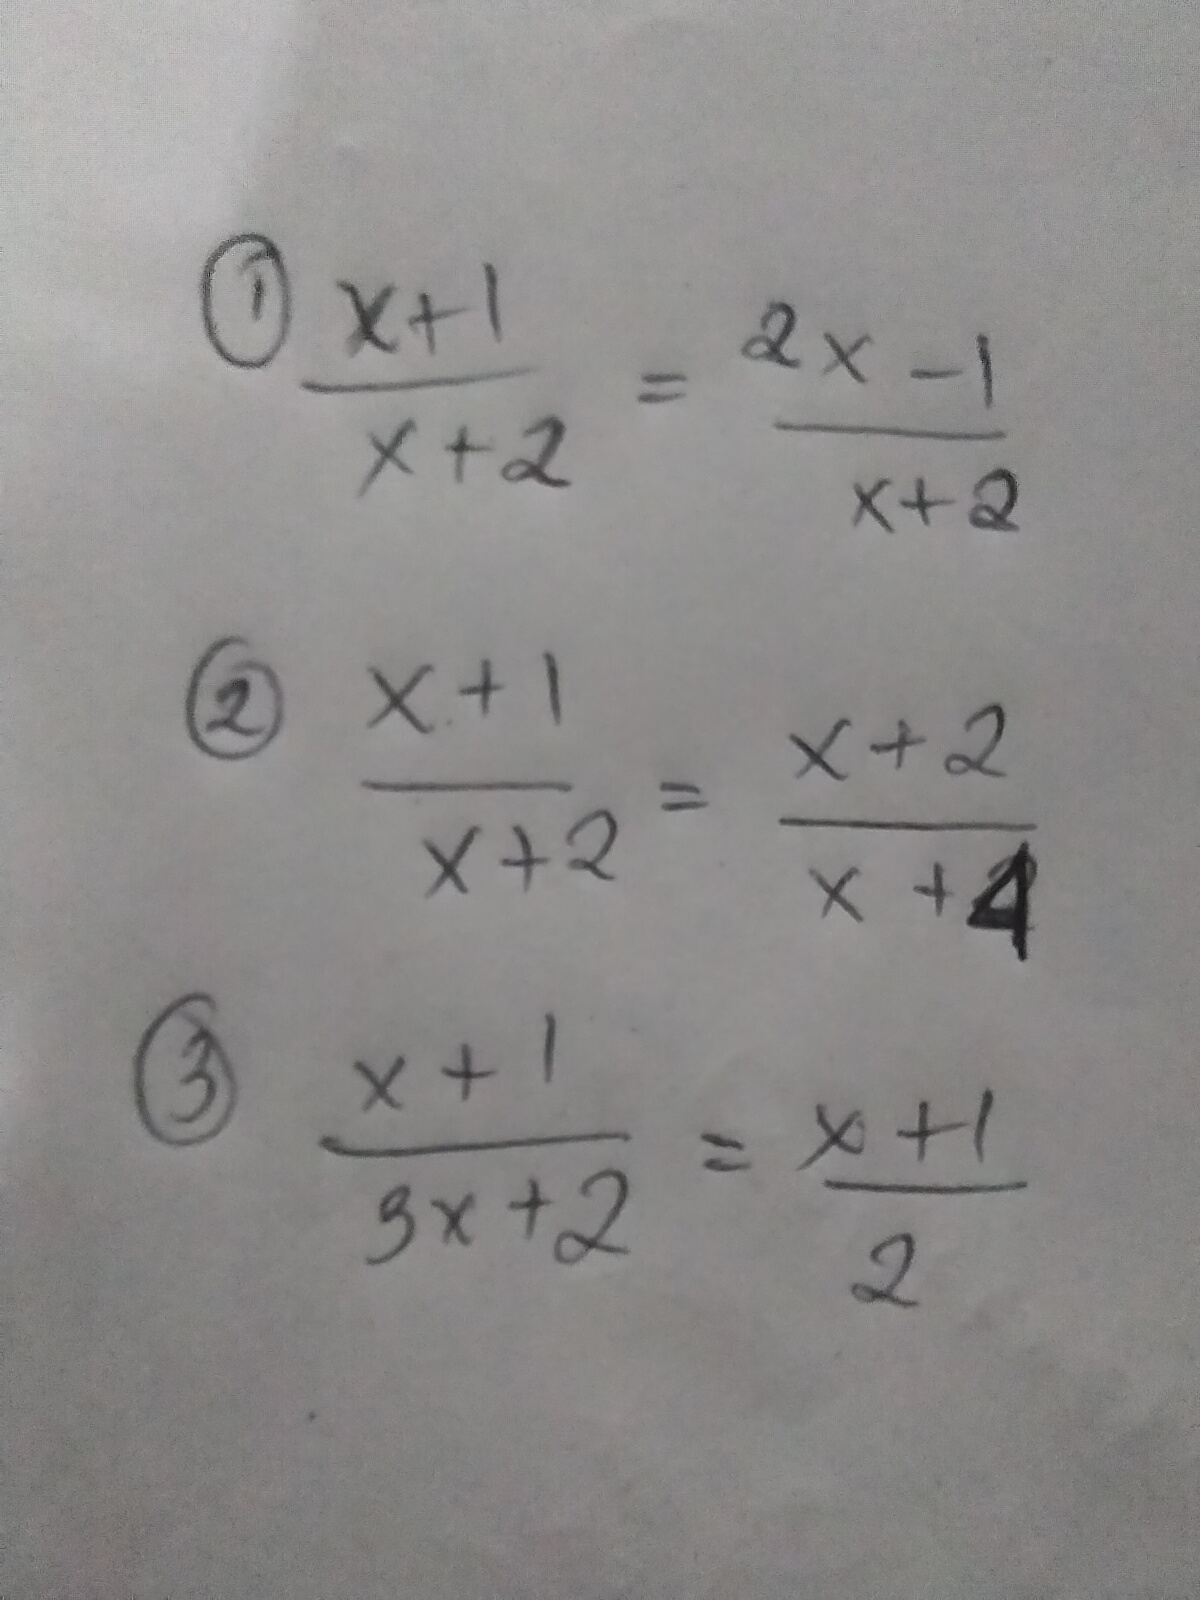 ① x+1/x+2 = 2x-1/x+2
② x+1/x+2 = x+2/x+4
③ x+1/3x+2 = x+1/2